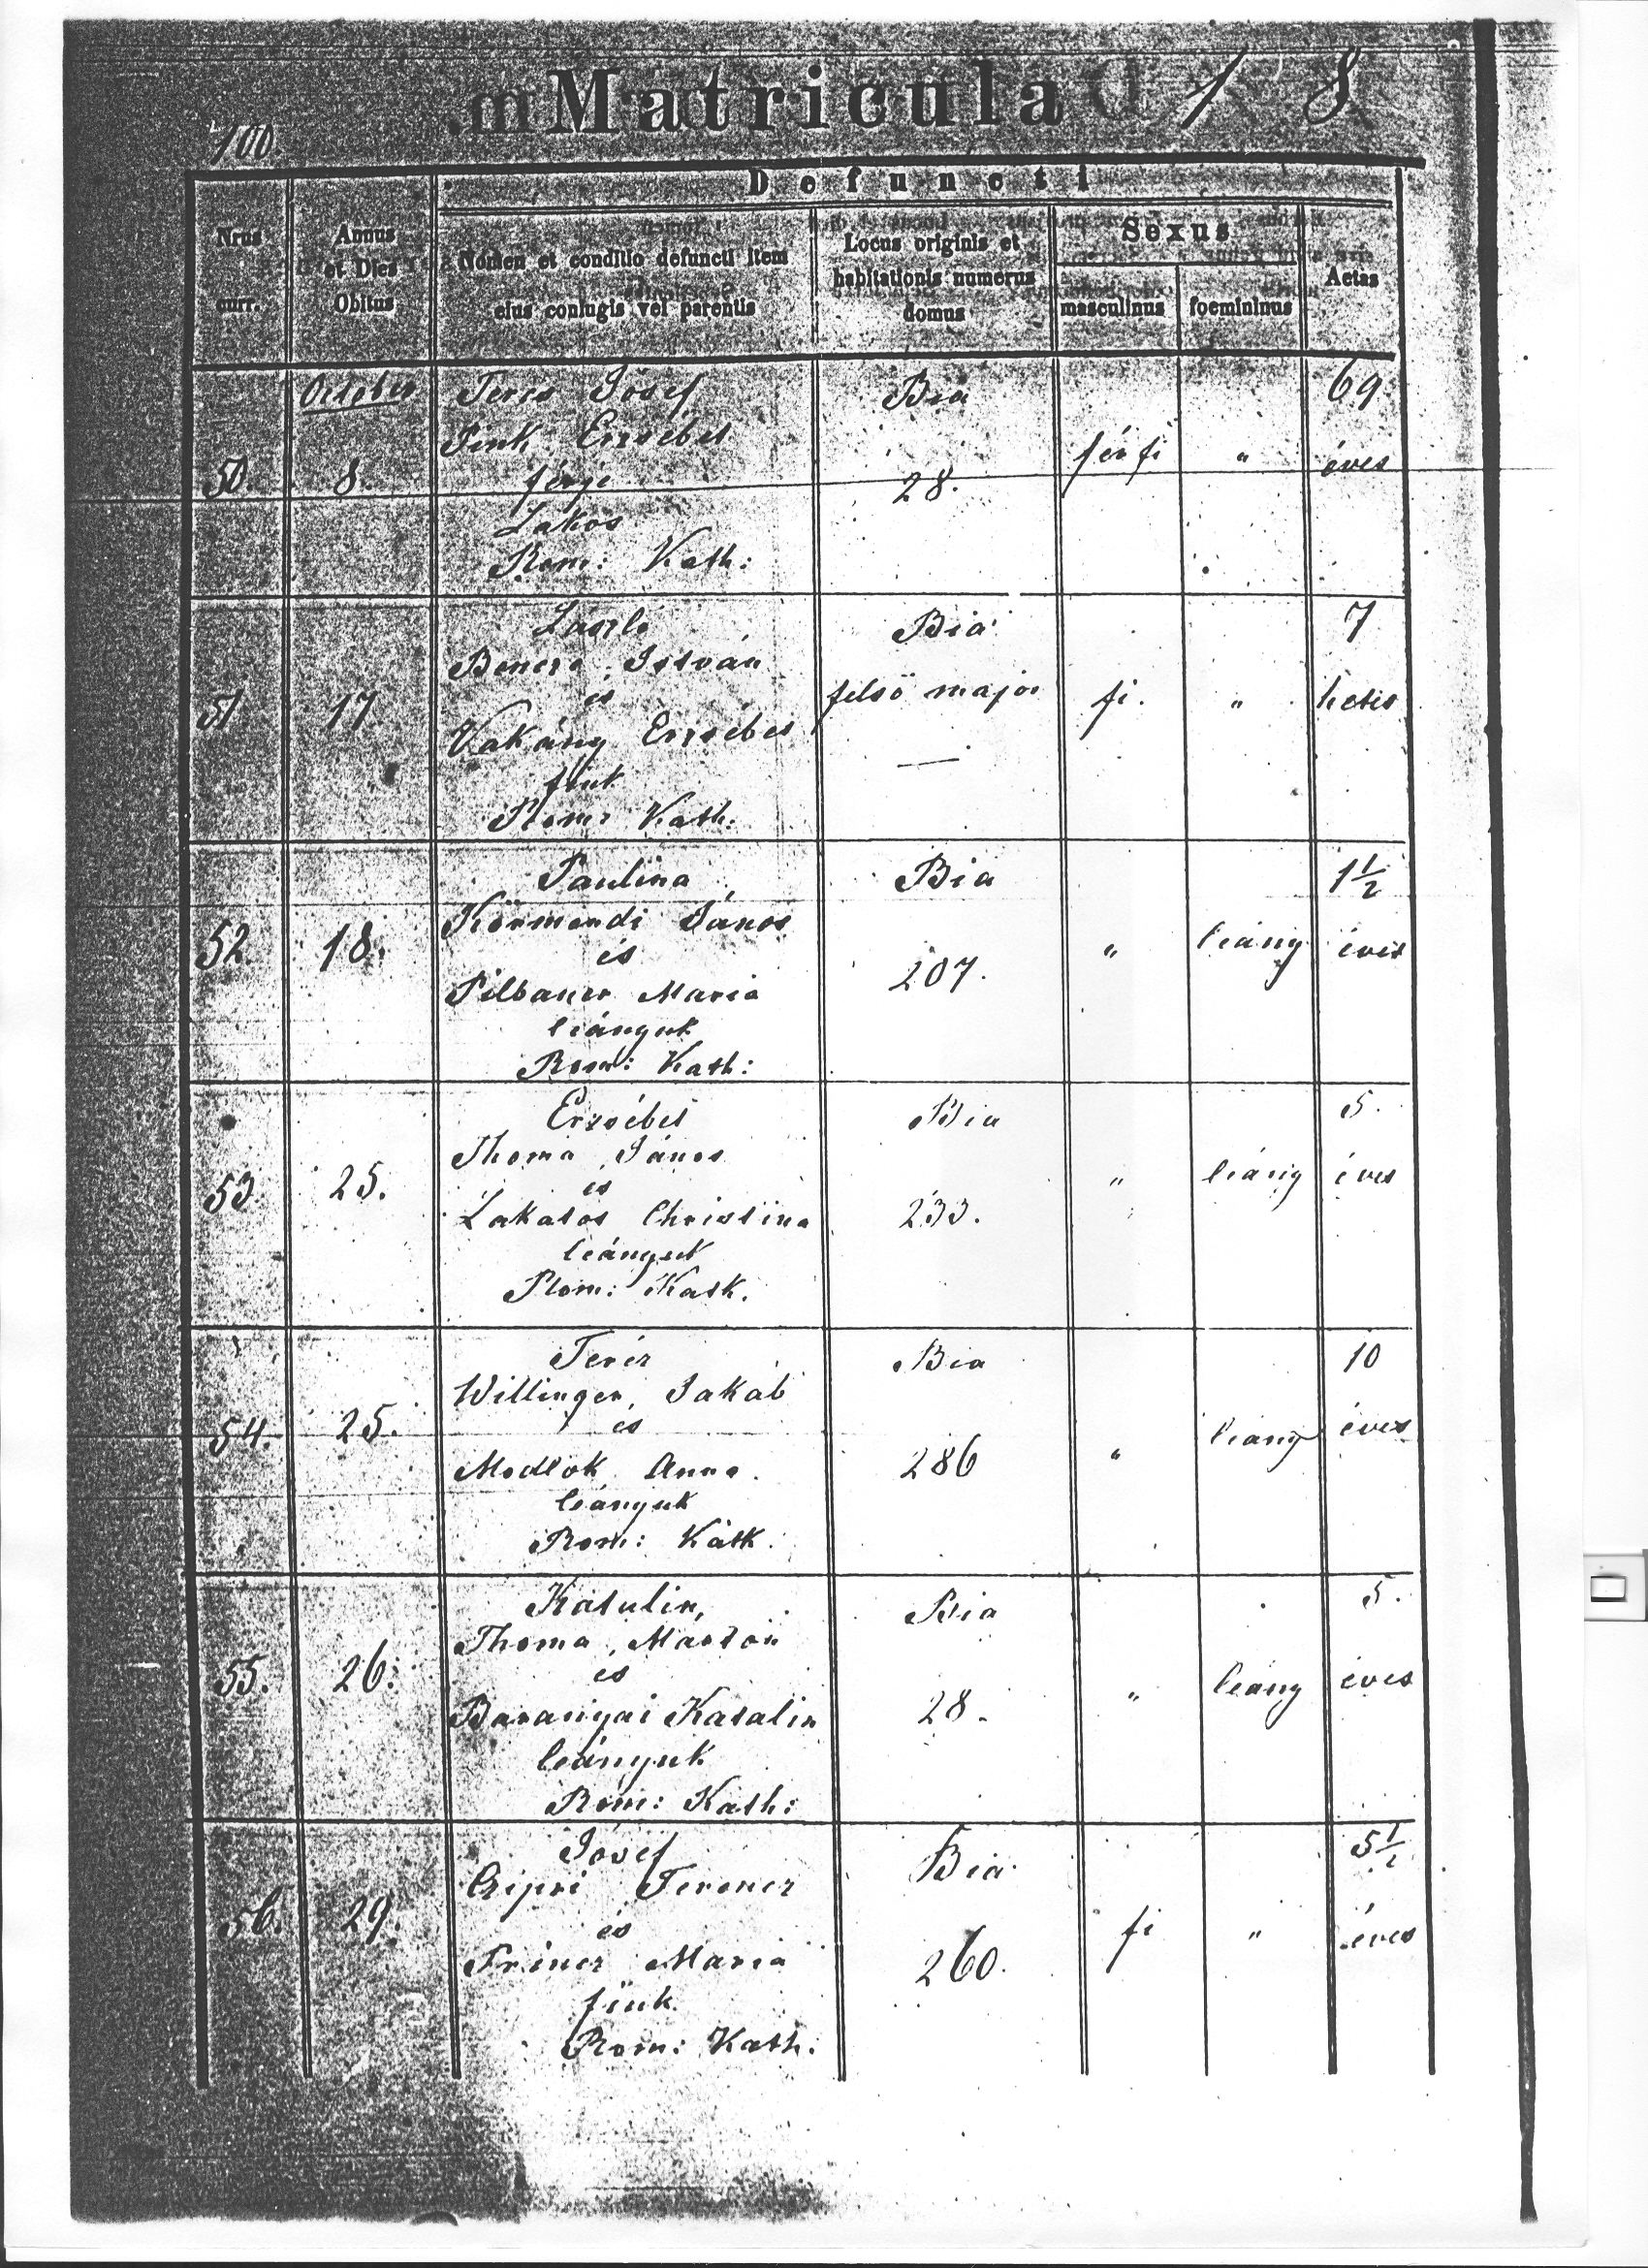 Matricula 1 8
100
Defuncti
Nrus curr.
Annus et Dies Obitus
Nomen et conditio defuncti item eius coniugis vel parentis
Locus originis et habitationis numerus domus
Sexus
masculinus
foemininus
Aetas
October
50 8. József Erzsébet férje Lakos Rom: Kath: Bia 28. férfi " 69 éves
51 17 László István és Vakány Erzsébet fiuk Rom: Kath: Bia felsö major — fi. " 7 hetes
52 18. Paulina Körmendi János és Pilbauer Maria leányuk Rom: Kath: Bia 207. " leány 1 1/2 éves
53. 25. Erzsébet Thoma János és Lakatos Christina leányuk Rom: Kath. Bia 233. " leány 5. éves
54. 25. Teréz Willinger Jakab és Modlok Anna leányuk Rom: Kath. Bia 286 " leány 10 éves
55. 26. Katalin, Thoma Márton és Baranyai Katalin leányuk Rom: Kath: Bia 28. " leány 5. éves
56. 29. József Ferencz és Maria fiuk Rom: Kath: Bia 260. fi " 5 1/2 éves